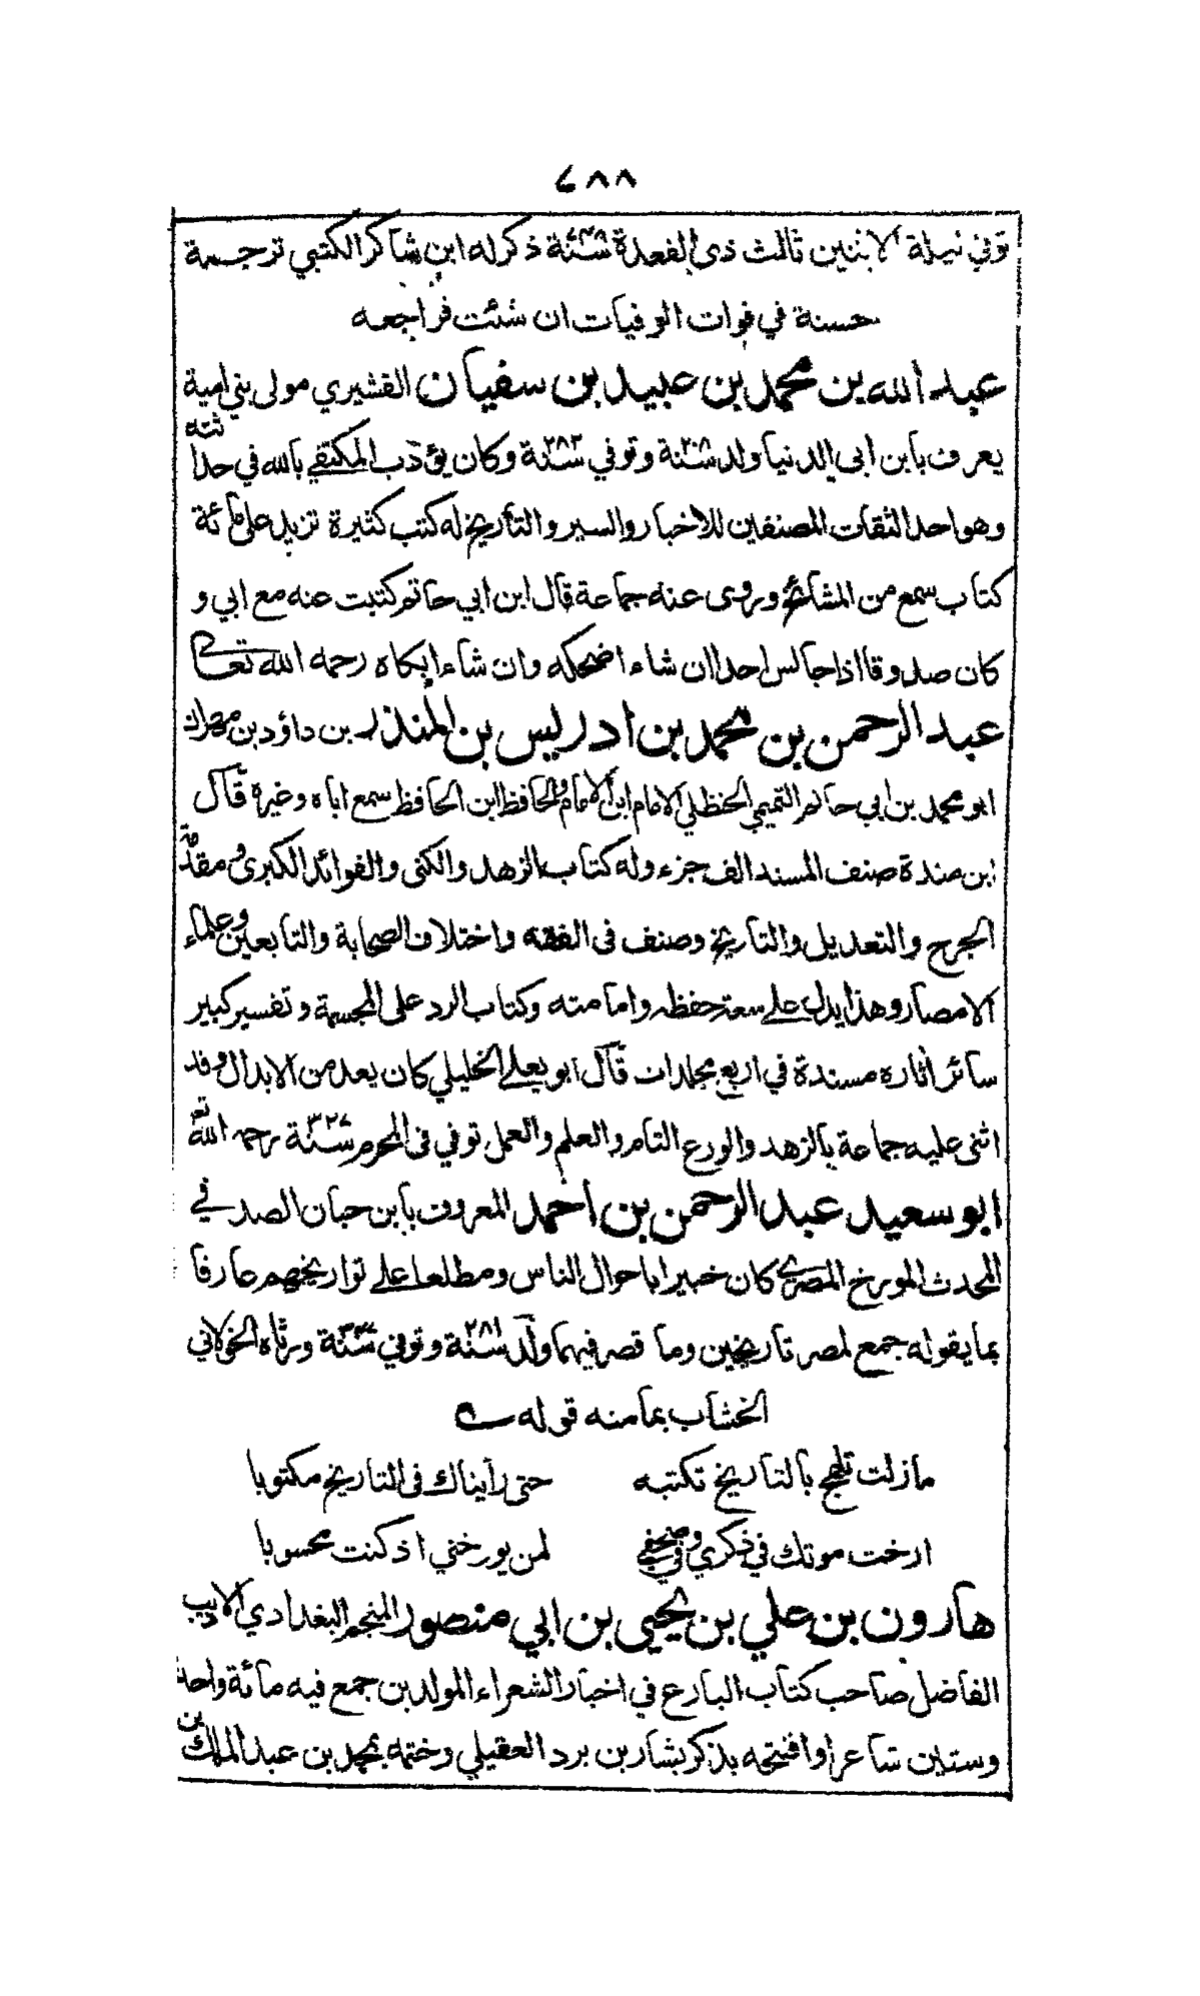 ٦٨٨
توفي ليلة الاثنين ثالث ذي القعدة سنة ذكر له ابن شاكر الكتبي ترجمة
حسنة في فوات الوفيات ان شئت فراجعه
عبد الله بن محمد بن عبيد بن سفيان القشيري مولى بني امية
يعرف بابن ابي الدنيا ولد سنة ٢٠٨ وتوفي سنة ٢٨٢ وكان يؤدب المكتفي بالله في حداثته
وهو احد الثقات المصنفين للاخبار والسير والتأريخ له كتب كثيرة تزيد على مائة
كتاب سمع من المشائخ وروى عنه جماعة قال ابن ابي حاتم كتبت عنه مع ابي و
كان صدوقا اذا جالس احدا ان شاء اضحكه وان شاء ابكاه رحمه الله تعالى
عبد الرحمن بن محمد بن ادريس بن المنذر بن داؤد بن مهران
ابو محمد بن ابي حاتم التميمي الحنظلي الامام ابن الامام والحافظ ابن الحافظ سمع اباه وغيره قال
ابن مندة صنف المسند الف جزء وله كتاب الزهد والكنى والفوائد الكبرى ومقدمة
الجرح والتعديل والتاريخ وصنف في الفقه واختلاف الصحابة والتابعين وعلماء
الامصار وهذا يدل على سعة حفظه وامامته وكتاب الرد على المجسمة وتفسير كبير
سائر اثاره مسندة في اربع مجلدات قال ابو يعلى الخليلي كان يعد من الابدال وقد
اثنى عليه جماعة بالزهد والورع التام والعلم والعمل توفي في المحرم سنة ٣٢٧ رحمه الله تع
ابو سعيد عبد الرحمن بن احمد المعروف بابن حبان الصدفي
المحدث المورخ المصري كان خبيرا باحوال الناس ومطلعا على تواريخهم عارفا
بما يقوله جمع لمصر تاريخين وما قصر فيهما ولد سنة ٢٨١ وتوفي سنة ٣٤٧ ورثاه الخولاني
الخشاب بما منه قوله
مازلت تلهج بالتاريخ تكتبه حتى رأيناك في التاريخ مكتوبا
ارخت موتك في ذكري وفي صحفي لمن يورخني اذ كنت محسوبا
هارون بن علي بن يحيى بن ابي منصور المنجم البغدادي الاديب
الفاضل صاحب كتاب البارع في اخبار الشعراء المولدين جمع فيه مائة واحد
وستين شاعرا وافتتحه بذكر بشار بن برد العقيلي وختمه بمحمد بن عبد الملك بن